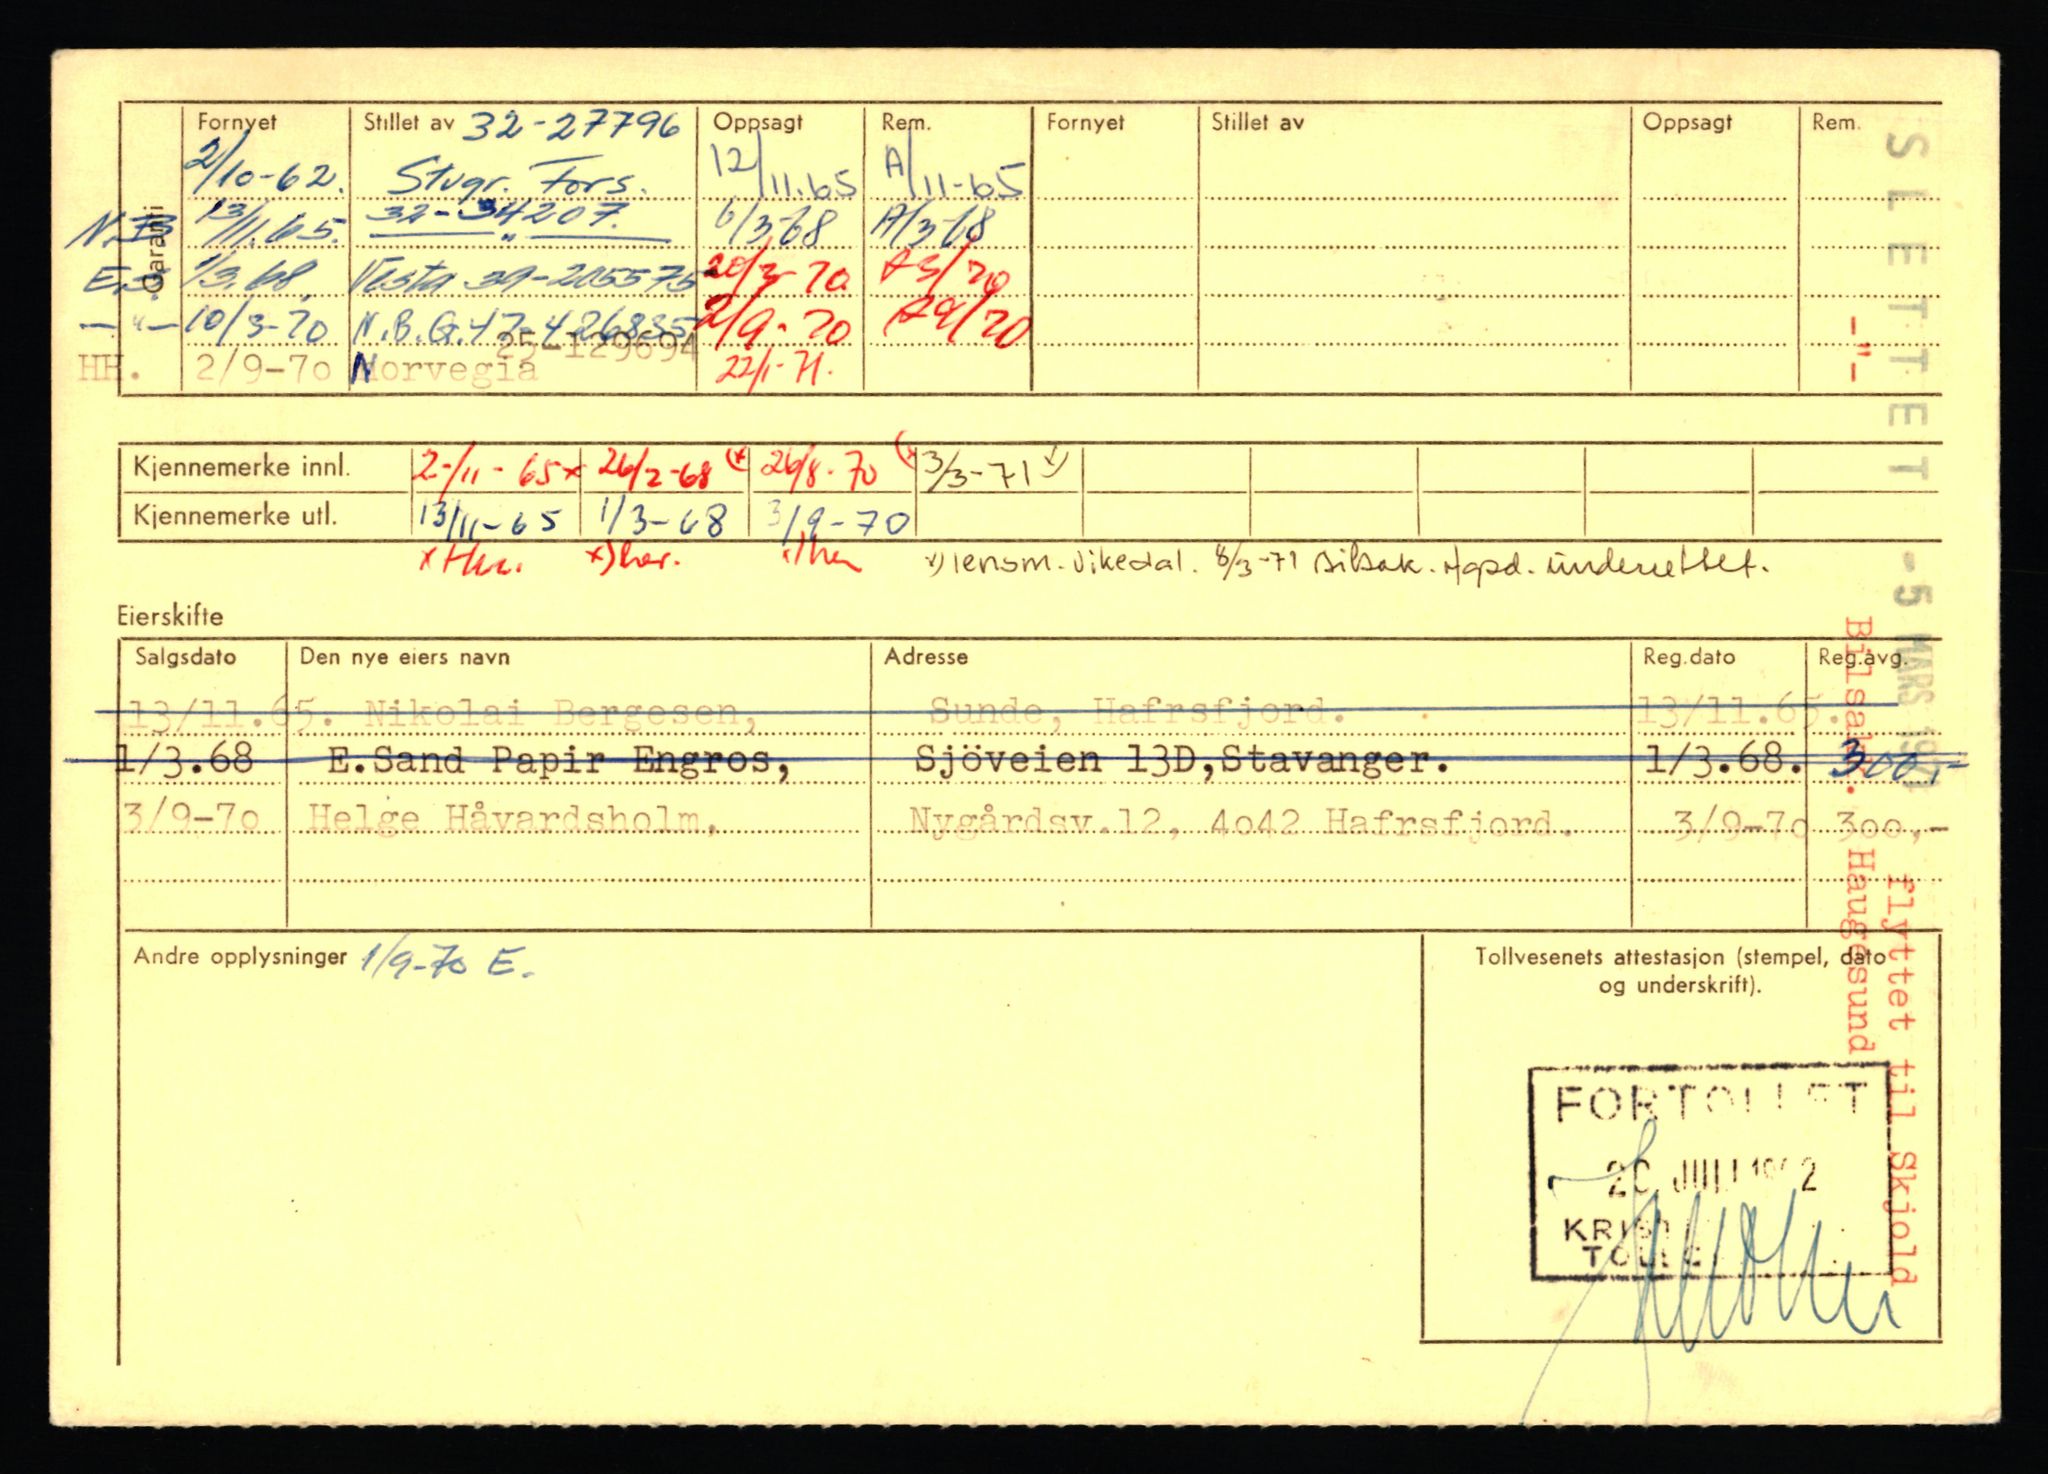 Garanti
Fornyet Stillet av 32-27796 Oppsagt Rem. Fornyet Stillet av Oppsagt Rem.
2/10-62. Stvgr. Fors. 12/11.65 A/11-65
N.B 13/11.65. 32-34207. 6/3-68 A/3-68
E.S. 1/3.68. Vesta 39-205575 20/3-70 A3/70
-"- 10/3-70 N.B.G. 47-426835 2/9-70 A9/70
25-129694
HH. 2/9-70 Norvegia 22/1-71.
Kjennemerke innl. 2-/11-65x 26/2-68 x) 26/8-70 3/3-71 x)
Kjennemerke utl. 13/11-65 1/3-68 3/9-70
x) her. x) lensm. Vikedal. 8/3-71 underrettet.
Eierskifte
Salgsdato Den nye eiers navn Adresse Reg.dato Reg.avg.
13/11.65. Nikolai Bergesen, Sunde, Hafrsfjord. 13/11.65.
1/3.68 E.Sand Papir Engros, Sjöveien 13D,Stavanger. 1/3.68. 300,-
3/9-70 Helge Håvardsholm, Nygårdsv.12, 4042 Hafrsfjord. 3/9-70 300,-
Andre opplysninger 1/9-70 E.
Tollvesenets attestasjon (stempel, dato
og underskrift).
FORTOLLET
SLETTET -5 MARS 1971
-"- Bilsakk. Haugesund
flyttet til Skjold